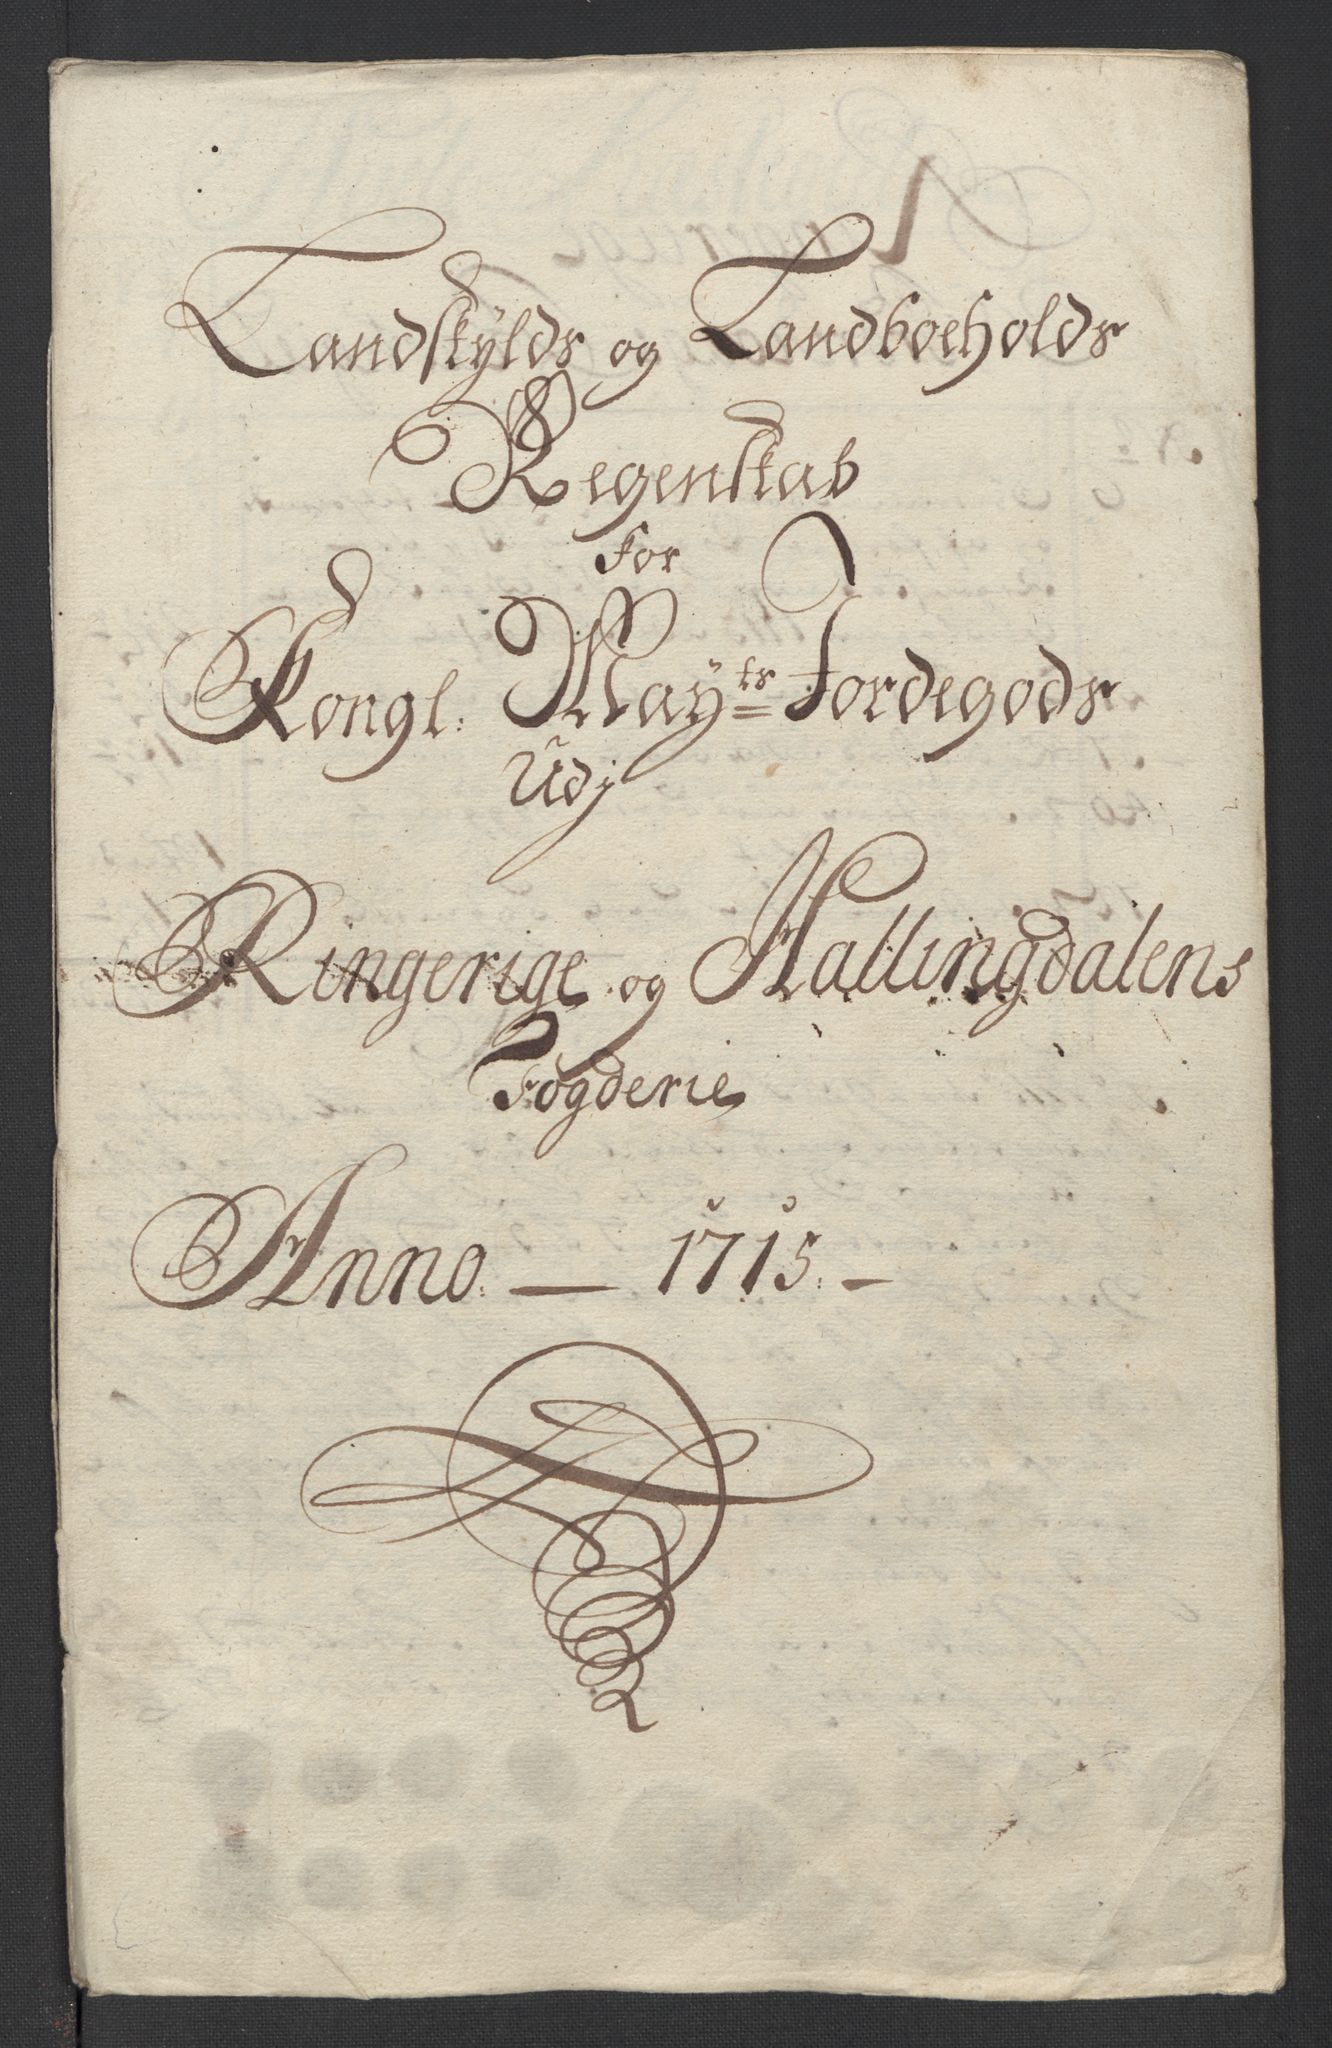 Landskylds og Landboeholds
Regenskab
for
Kongl. May:ts Jordegods
Udj
Ringerige og Hallingdalens
Fogderie
Anno. — 1715. —